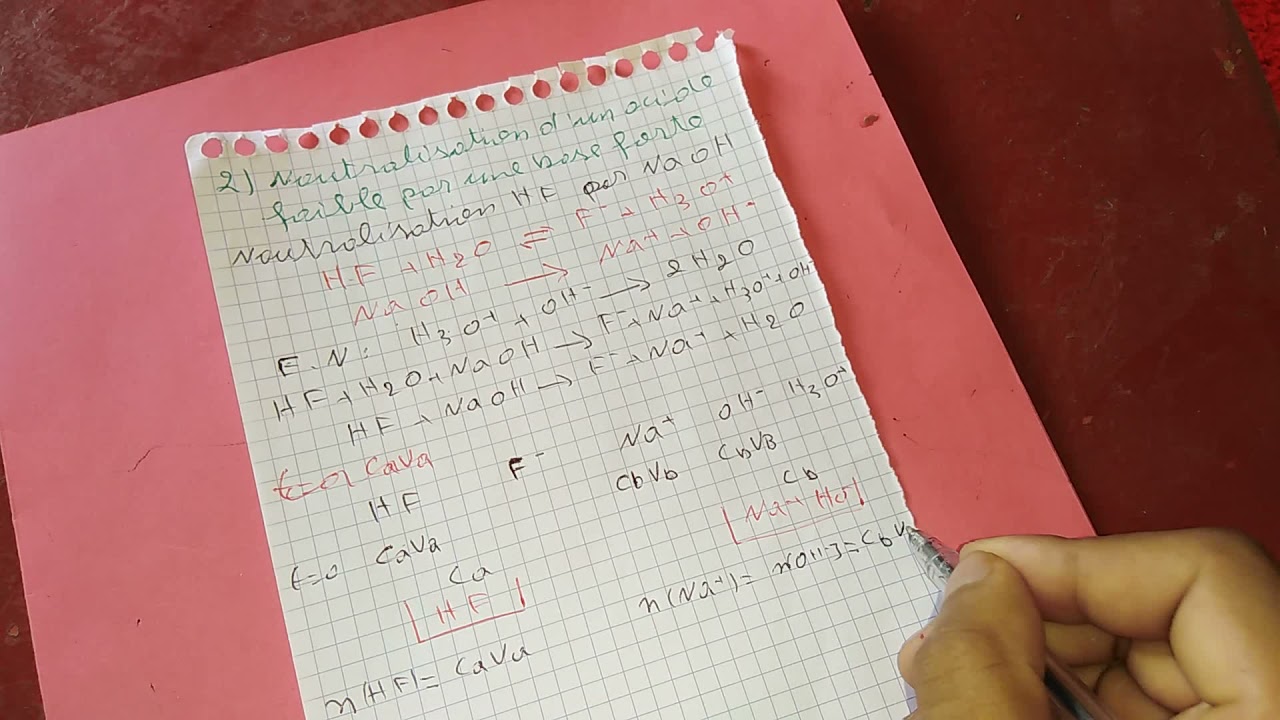 2) Neutralisation d'un acide
faible par une base forte
Neutralisation HF par NaOH
HF + H2O ⇌ F- + H3O+
NaOH → Na+ + OH-
E.N: H3O+ + OH- → 2H2O
HF + H2O + NaOH → F- + Na+ + H3O+ + OH-
HF + NaOH → F- + Na+ + H2O
t=0 CaVa
HF F- Na+ OH- H3O+
t=0 CaVa CbVb CbVB
Ca Cb
HF Na+
n(HF) = CaVa n(Na+) =